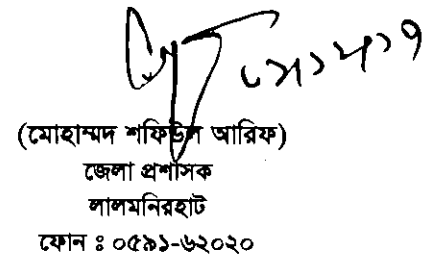 (মোহাম্মদ শফিউল আরিফ)
জেলা প্রশাসক
লালমনিরহাট
ফোন ঃ ০৫৯১-৬২০২০